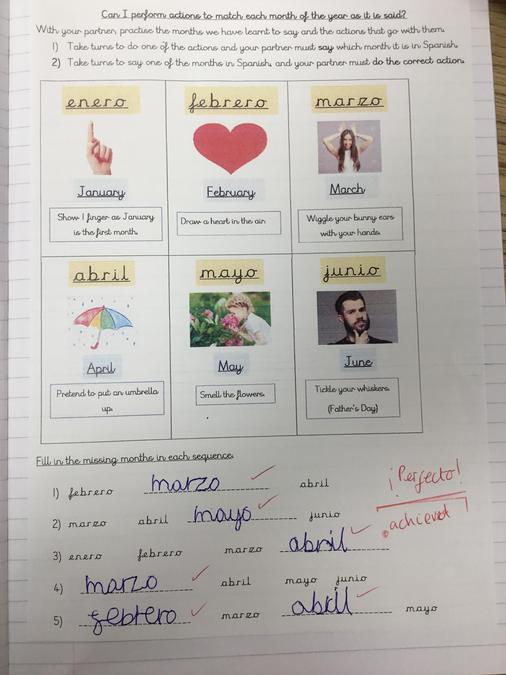 Can I perform actions to match each month of the year as it is said?
With your partner, practise the months we have learnt to say and the actions that go with them.
1) Take turns to do one of the actions and your partner must say which month it is in Spanish.
2) Take turns to say one of the months in Spanish, and your partner must do the correct action.
enero febrero marzo
January February March
Show 1 finger as January is the first month.
Draw a heart in the air.
Wiggle your bunny ears with your hands.
abril mayo junio
April May June
Pretend to put an umbrella up.
Smell the flowers.
Tickle your whiskers. (Father's Day)
Fill in the missing months in each sequence.
1) febrero marzo abril
2) marzo abril mayo junio
3) enero febrero marzo abril
4) marzo abril mayo junio
5) febrero marzo abril mayo
¡Perfecto!
achieved